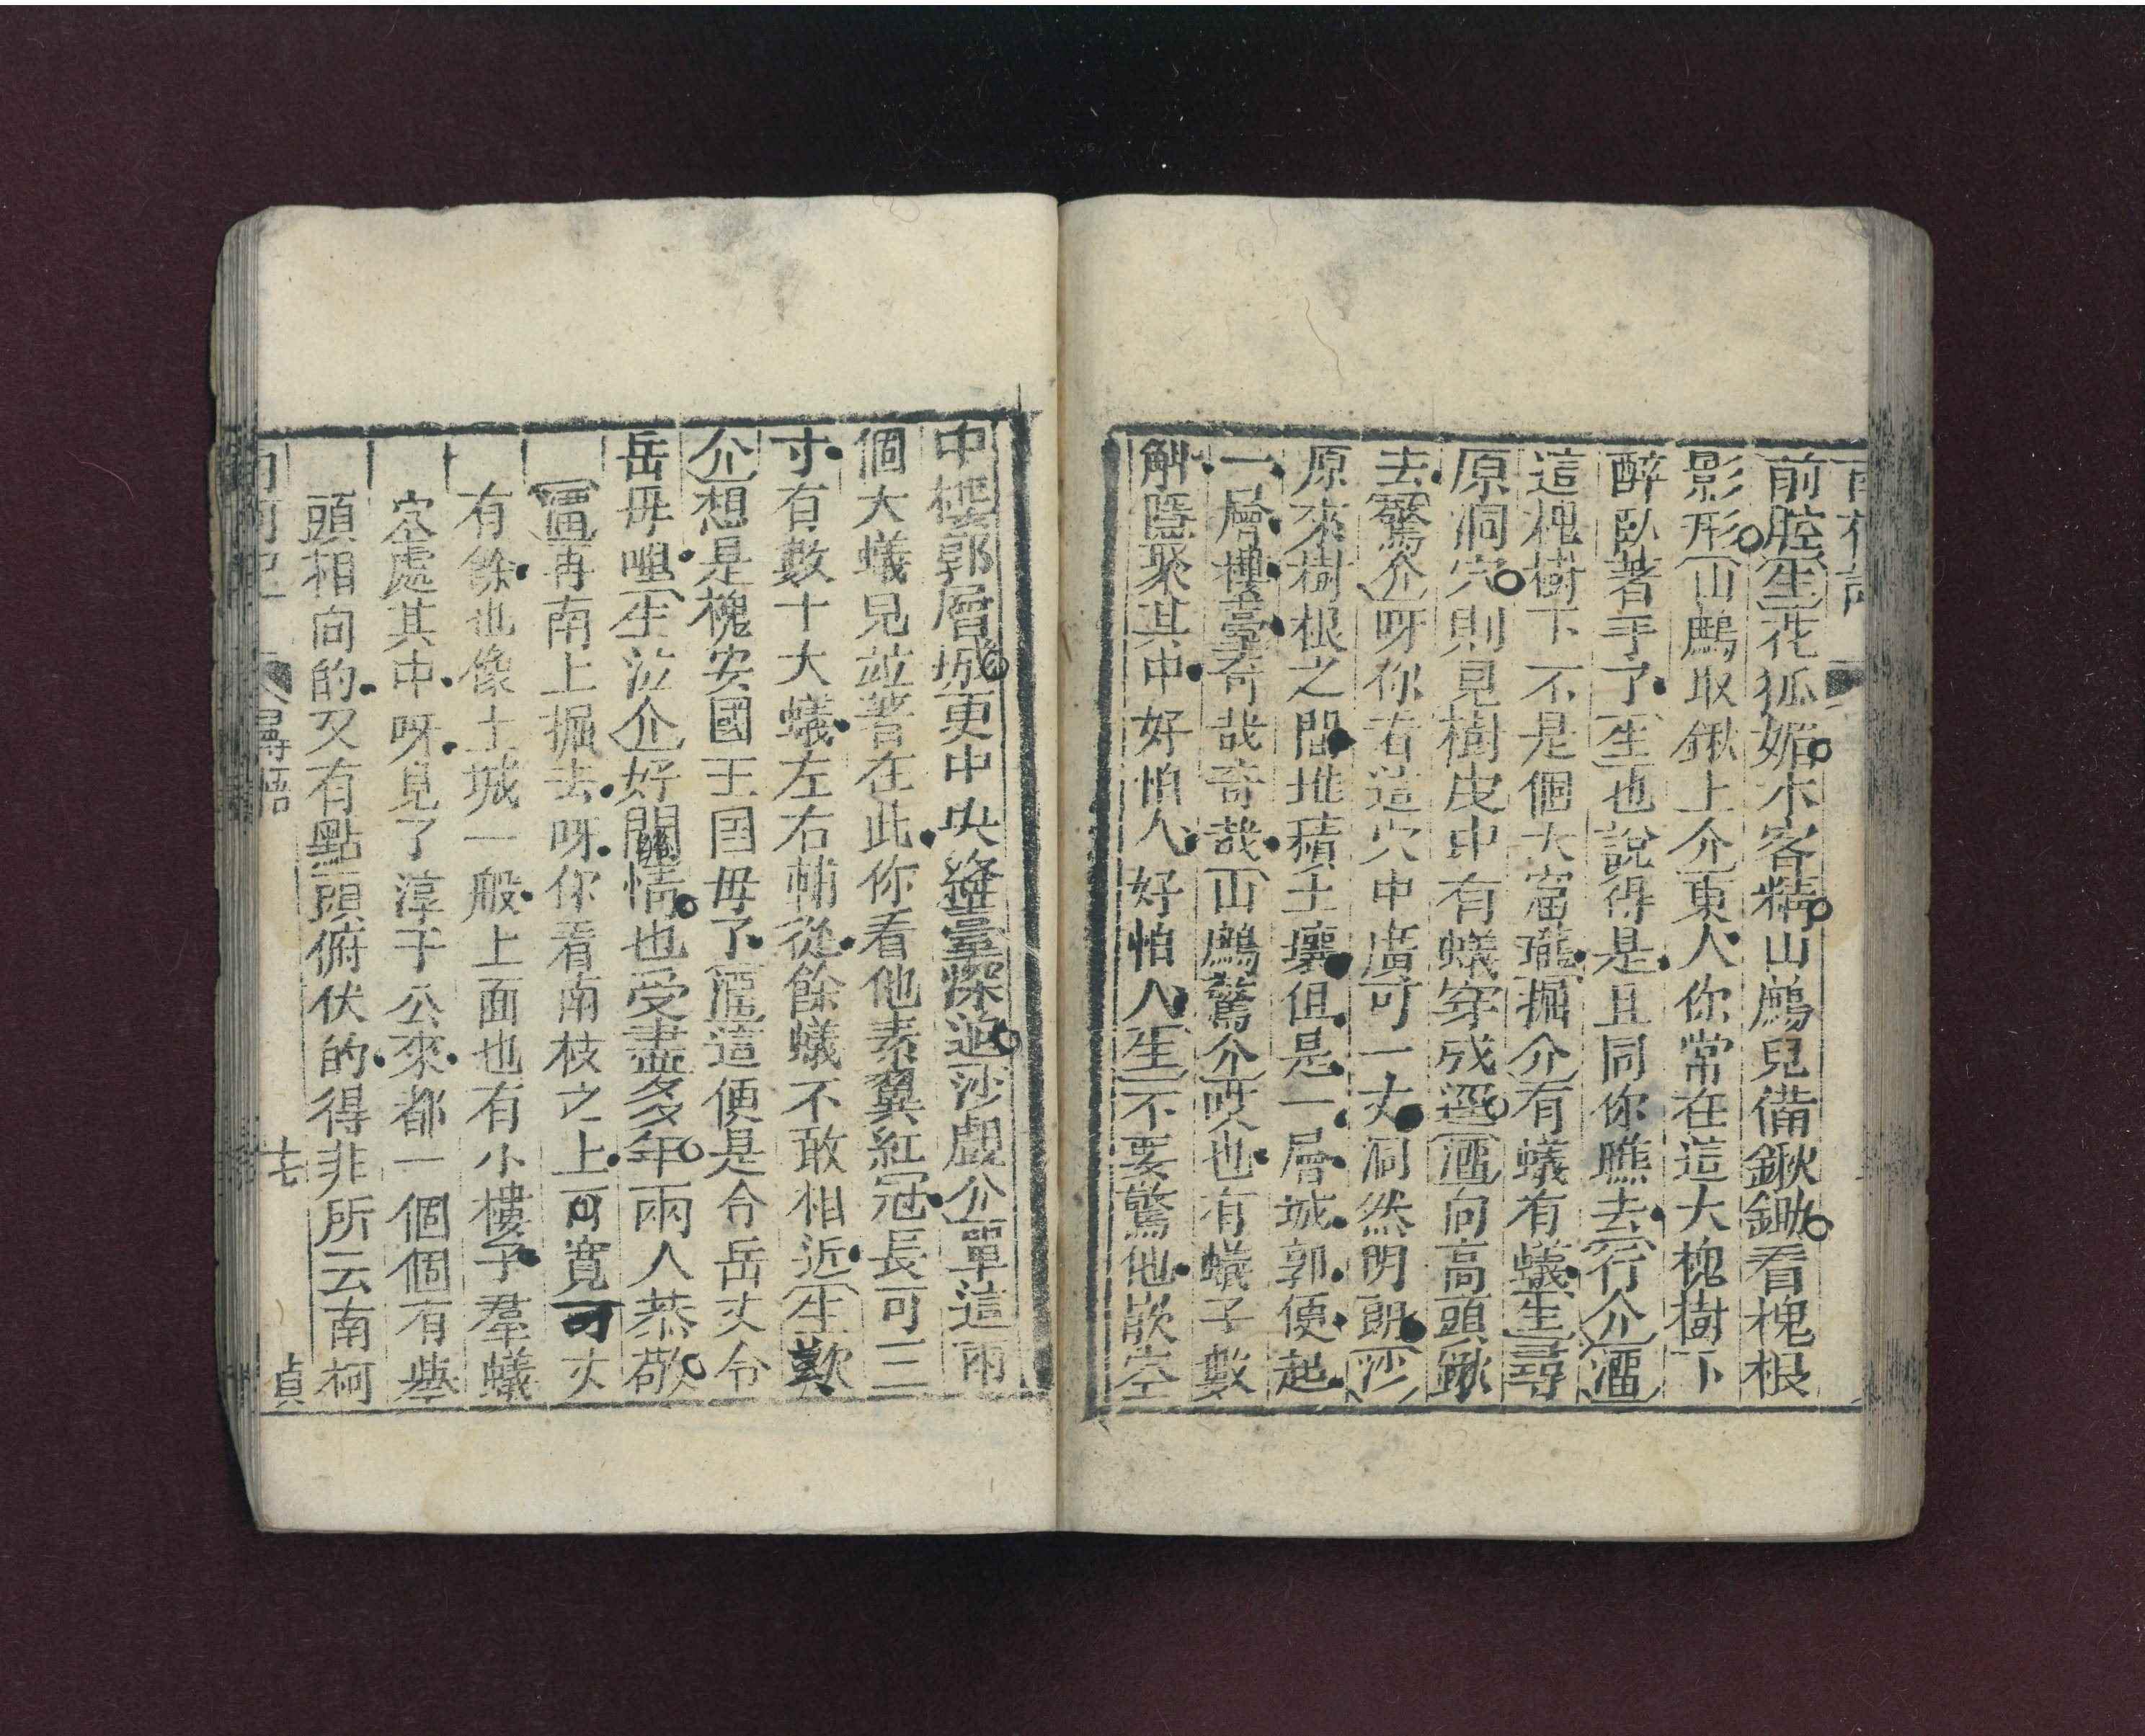 前腔生花狐媚木客精山鷓兒備鍬鋤看槐根
影形山鷓取鍬上介東人你常在這大槐樹下
醉臥著手了生也說得是且同你瞧去行介溜
這槐樹下不是個大窟瓏掘介有蟻有蟻生尋
原洞穴則見樹皮中有蟻穿成逕溜向高頭鍬
去驚介呀你看這穴中廣可一丈洞然明朗沙
原來樹根之間堆積土壤但是一層城郭便起
一層樓臺奇哉奇哉山鷓驚介哎也有蟻子數
斛隱聚其中好怕人好怕人生不要驚他嵌空
中樓郭層城更中央絳臺深逈沙覷介單這兩
個大蟻兒竝著在此你看他素翼紅冠長可三
寸有數十大蟻左右輔從餘蟻不敢相近生歎
介想是槐安國王国毋了溜這便是令岳丈令
岳毋㗳生泣介好關情也受盡多年兩人恭敬
畐再南上掘去呀你看南枝之上可寬可丈
有餘也像土城一般上面也有小樓子羣蟻
穴處其中呀見了淳于公來都一個個有些
頭相向的又有點頭俯伏的得非所云南柯
尋悟
十七
貞